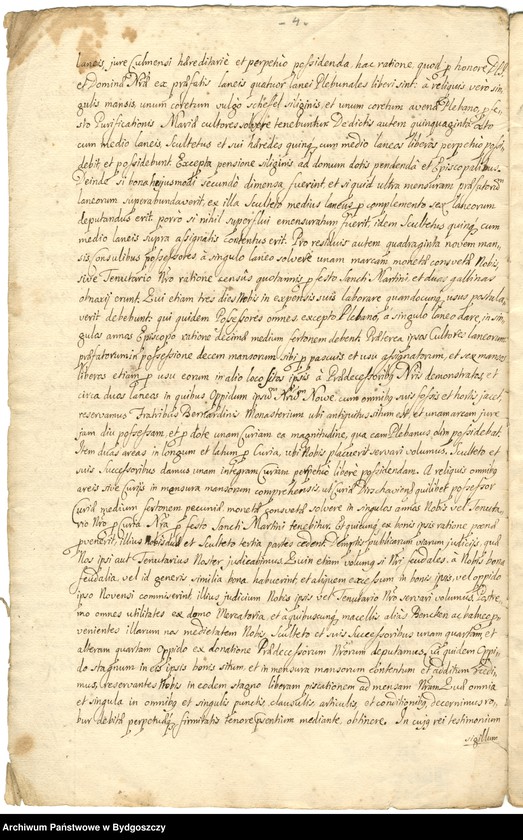 - 4 -
laneis, jure Culmensi hæreditarie et perpetuo possidenda, hac ratione, quod p honore Dei
et Dominæ Nræ ex præfatis laneis quatuor lanei Plebanales liberi sint: à reliquis vero sin-
gulis mansis, unum coretum vulgo scheffel siliginis, et unum coretum avenæ Plebano, p fe-
sto Purificationis Mariæ cultores solvere tenebuntur. De dictis autem quinquaginta octo
cum medio laneis, Scultetus et sui hæredes quinq cum medio laneos liberos perpetuo possi-
debit et possidebunt. Excepta pensione siliginis, ad domum dotis pendenda et Episcopalibus.
Deinde si bona hujusmodi secundò dimensa fuerint, et si quid ultra mensuram præfatorum
laneorum superabundaverit, ex illa Sculteto medius laneus p complemento sex laneorum
deputandus erit. porrò si nihil superflui emensuratum fuerit, idem Scultetus quinq cum
medio laneis supra assignatis contentus erit. Pro residuis autem quadraginta novem man-
sis, Consulibus possessores à singulo laneo solvere unam marcam monetæ consvetæ Nobis,
sive Tenutario Nro ratione censûs quotannis p festo Sancti Martini, et duas gallinas
obnoxij erunt. Qui etiam tres dies Nobis in expensis suis laborare quandocunq usus postula-
verit debebunt. qui quidem Possessores omnes excepto Plebano, à singulo laneo dare, in sin-
gulos annos Episcopo ratione decimæ medium fertonem debent. Præterea ipsos Cultores laneorum
præfatorum in possessione decem mansorum sibi p pascuis, et usu assignatorum, et sex mansos
liberos etiam p usu eorum in alio loco sitos ipsis à Prædecessoribus Nris demonstratos, et
circa duos laneos in quibus Oppidum ipsum Nrum Nowe cum omnibus suis fossis et hortis jacet,
reservamus Fratribus Bernardinis Monasterium ubi antiquitus situm est, et unam aream jure
jam diu possessam, et p dote unam Curiam ex magnitudine, qua eam Plebanus olim possidebat.
Item duas areas in longum et latum p Curia, ubi Nobis placuerit servari volumus. Sculteto et
suis Successoribus damus unam integram Curiam perpetuo liberè possidendam. A reliquis omnibus
areis sive Curijs in mensura mansorum comprehensis, ut Curiæ quilibet possessor
Curiæ medium fertonem pecuniæ monetæ consvetæ solvere in singulos annos Nobis vel Tenuta-
rio Nro p Curia Nra p festo Sancti Martini tenebitur. Et quidquid ex bonis ipsis ratione pœnæ
pvenerit, illius Nobis duæ et Sculteto tertia partes cedent. Demptis publicarum viarum judicijs, quæ
Nos ipsi aut Tenutarius Noster judicabimus. Quin etiam volumus si Nri feudales. à Nobis bona
feudalia, vel id generis similia bona habuerint, et aliquem excessum in bonis ipsis, vel oppido
ipso Novensi commiserint, illius judicium Nobis ipsis vel Tenutario Nro servari volumus. Postre-
mo omnes utilitates ex domo Mercatoria, et a quibuscunq macellis alias Boncken ac habitis p-
venientes illarum nos medietatem Nobis, Sculteto et suis Successoribus unam quartam, et
alteram quartam Oppido ex donatione Prædecessorum Nrorum deputamus, id quidem Oppi-
do stagnum in eis ipsis bonis situm, et in mensura mansorum contentum et additum reddi-
mus, reservantes Nobis in eodem stagno liberam piscationem ad mensam Nram. Quæ omnia
et singula in omnibus et singulis punctis, clausulis, articulis, et conditionibus, decernimus ro-
bur debitæ perpetuæq firmitatis tenore psentium mediante, obtinere. In cujq rei testimonium
sigillum
Archiwum Państwowe w Bydgoszczy